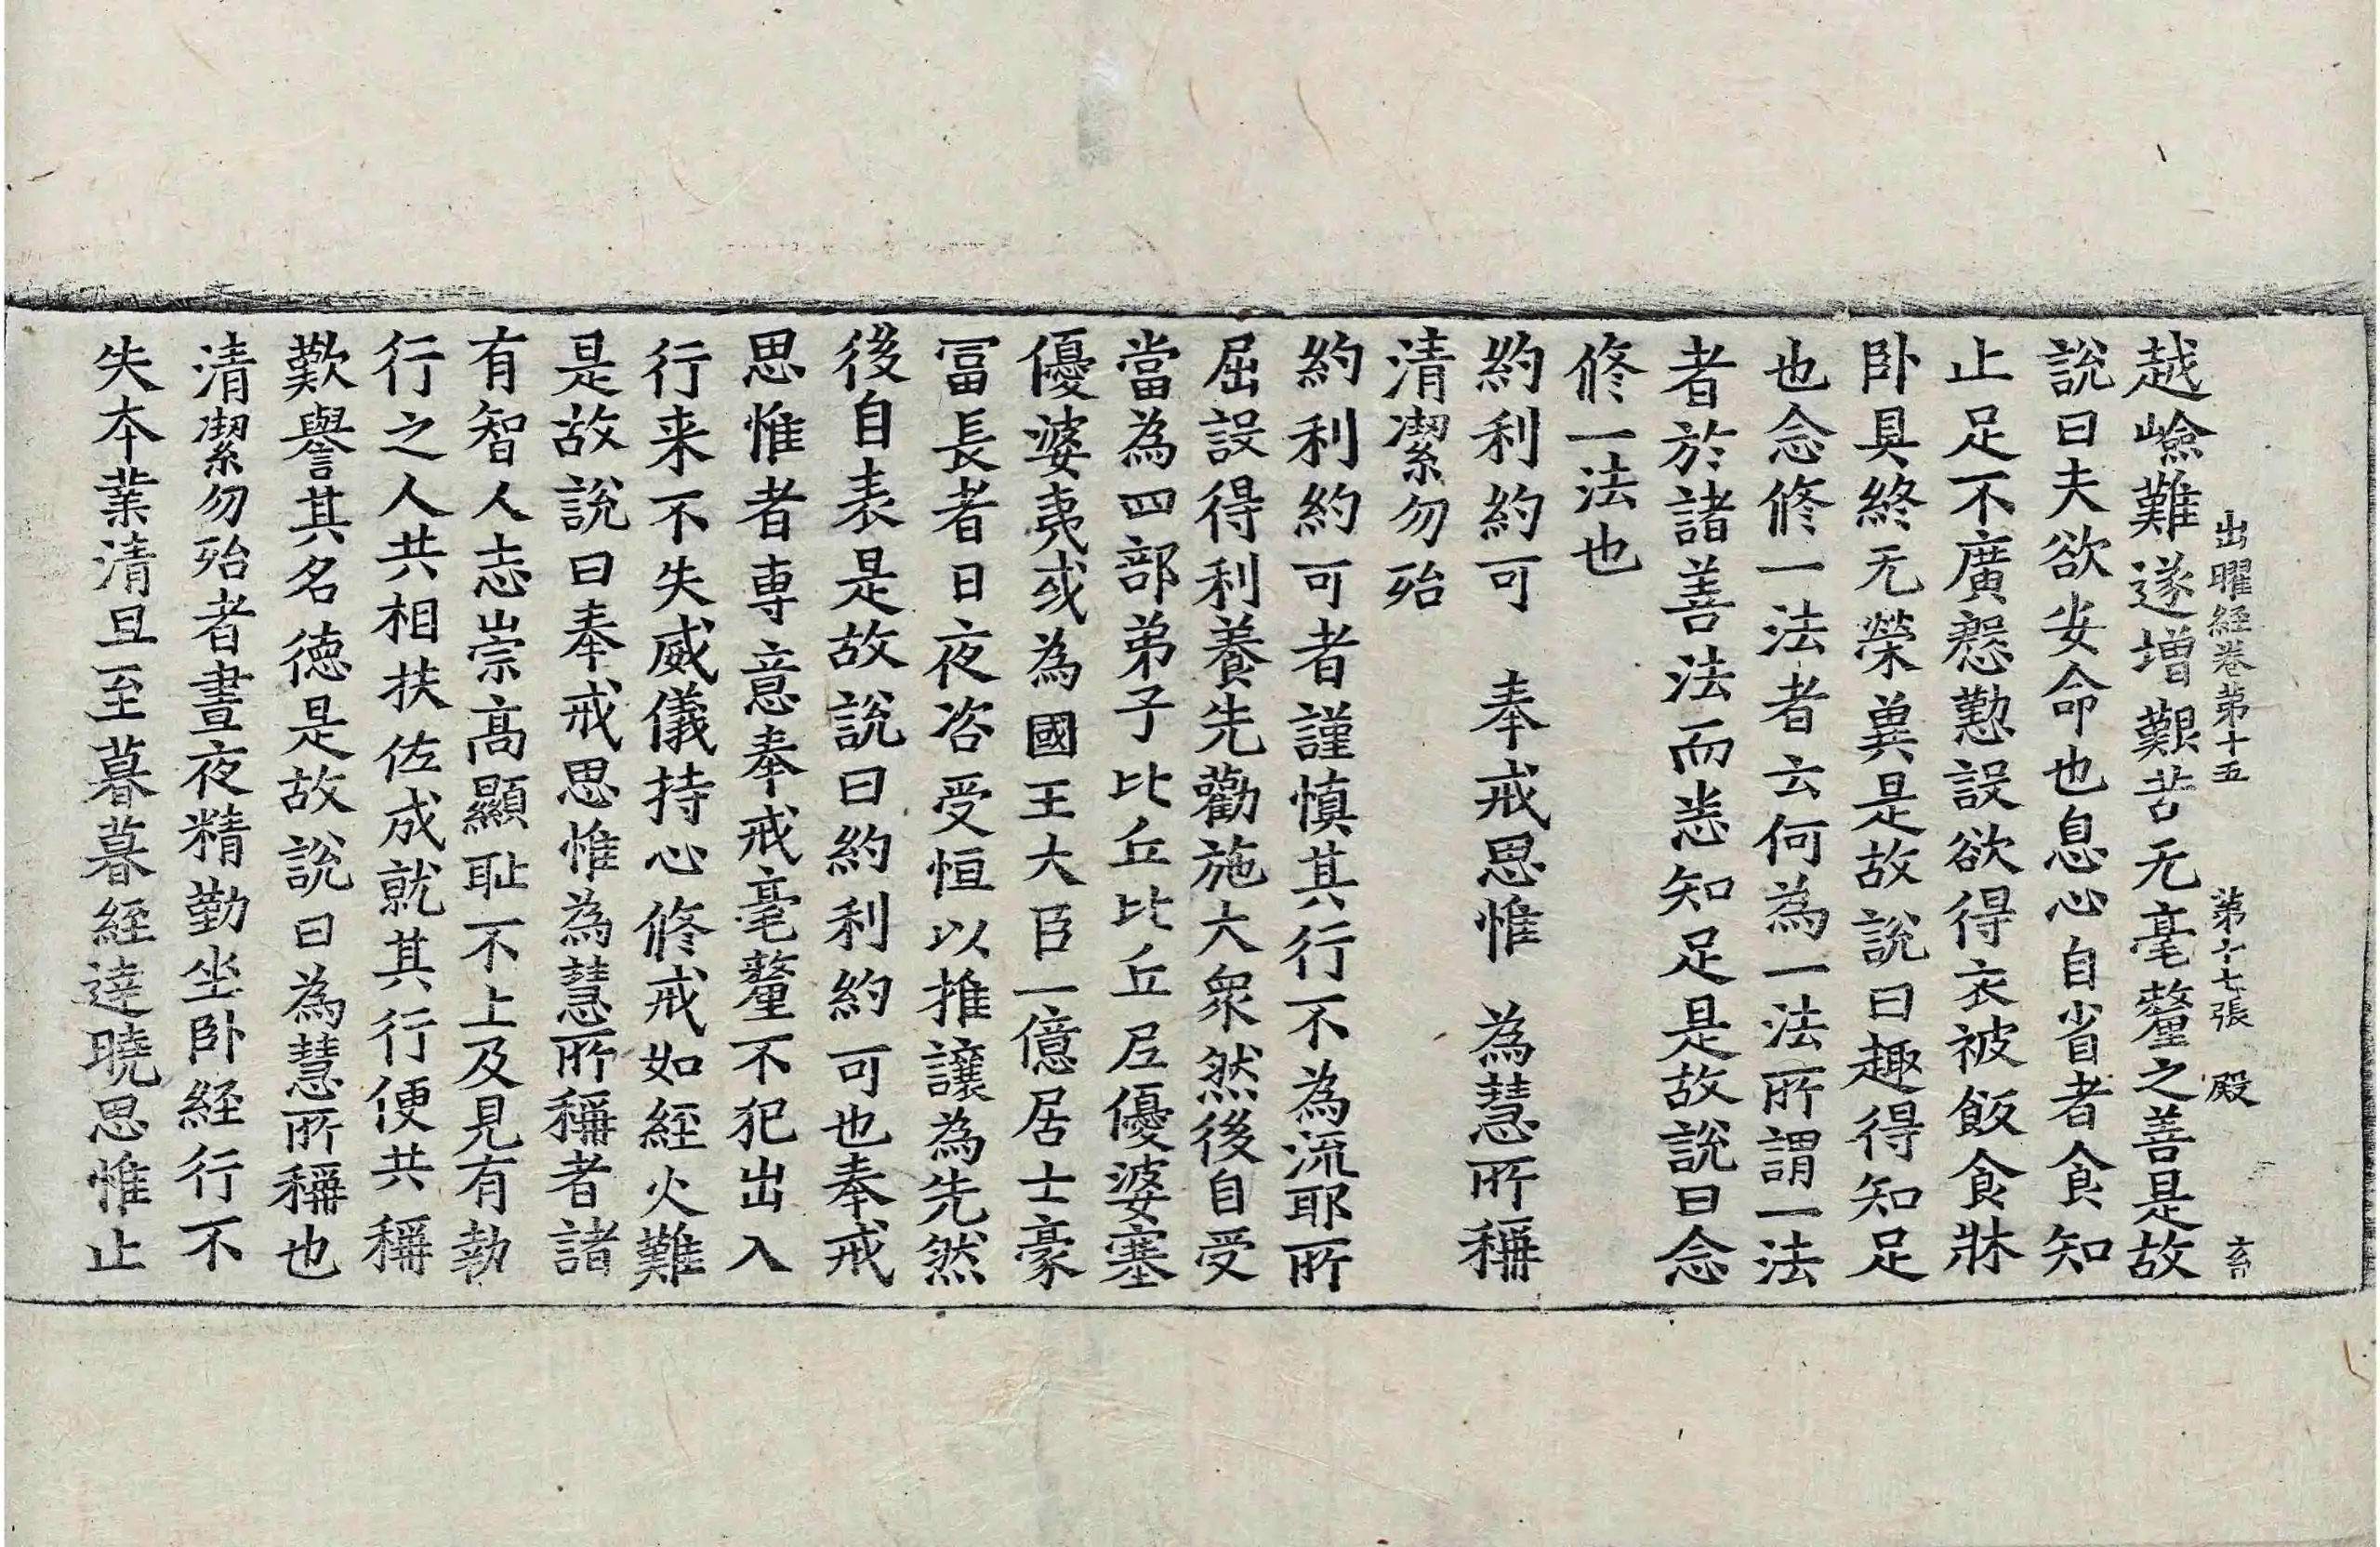 出曜経卷第十五　第十七張　殿
越嶮難遂增艱苦无毫釐之善是故
說曰夫欲安命也息心自省者食知
止足不廣慇懃設欲得衣被飯食牀
卧具終无榮兾是故說曰趣得知足
也念修一法者云何為一法所謂一法
者於諸善法而恙知足是故說曰念
修一法也
約利約可　奉戒思惟　為慧所稱
清潔勿殆
約利約可者謹慎其行不為流耶所
屈設得利養先勸施大衆然後自受
當為四部弟子比丘比丘尼優婆塞
優婆夷或為國王大臣一億居士豪
冨長者日夜咨受恒以推讓為先然
後自表是故說曰約利約可也奉戒
思惟者専意奉戒毫釐不犯出入
行来不失威儀持心修戒如経火難
是故說曰奉戒思惟為慧所稱者諸
有智人志崇高顯耻不上及見有執
行之人共相扶佐成就其行便共稱
歎譽其名德是故說曰為慧所稱也
清潔勿殆者晝夜精勤坐卧経行不
失本業清旦至暮暮経達曉思惟止